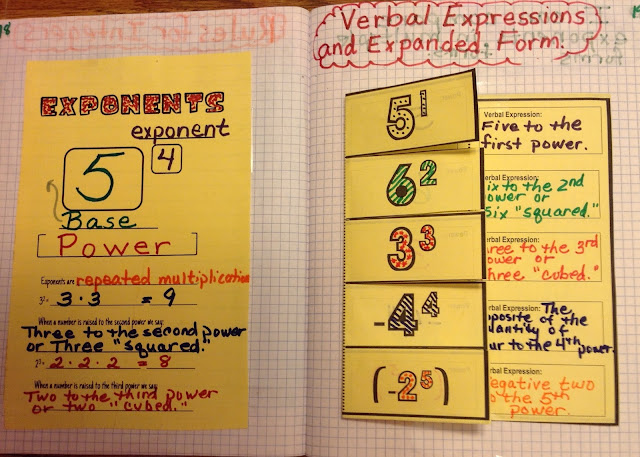 EXPONENTS
exponent
5 4
Base
Power
Exponents are repeated multiplication
3² = 3 · 3 = 9
When a number is raised to the second power we say:
Three to the second power
or Three "squared."
2³ = 2 · 2 · 2 = 8
When a number is raised to the third power we say:
Two to the third power
or two "cubed."
Verbal Expressions
and Expanded Form.
5¹
Verbal Expression:
Five to the
first power.
6²
erbal Expression:
ix to the 2nd
ower or
Six "squared."
3³
erbal Expression:
hree to the 3rd
ower or
hree "cubed."
-4⁴
erbal Expression: The
pposite of the
uantity of
ur to the 4th power.
(-2⁵)
erbal Expression:
egative two
o the 5th
power.